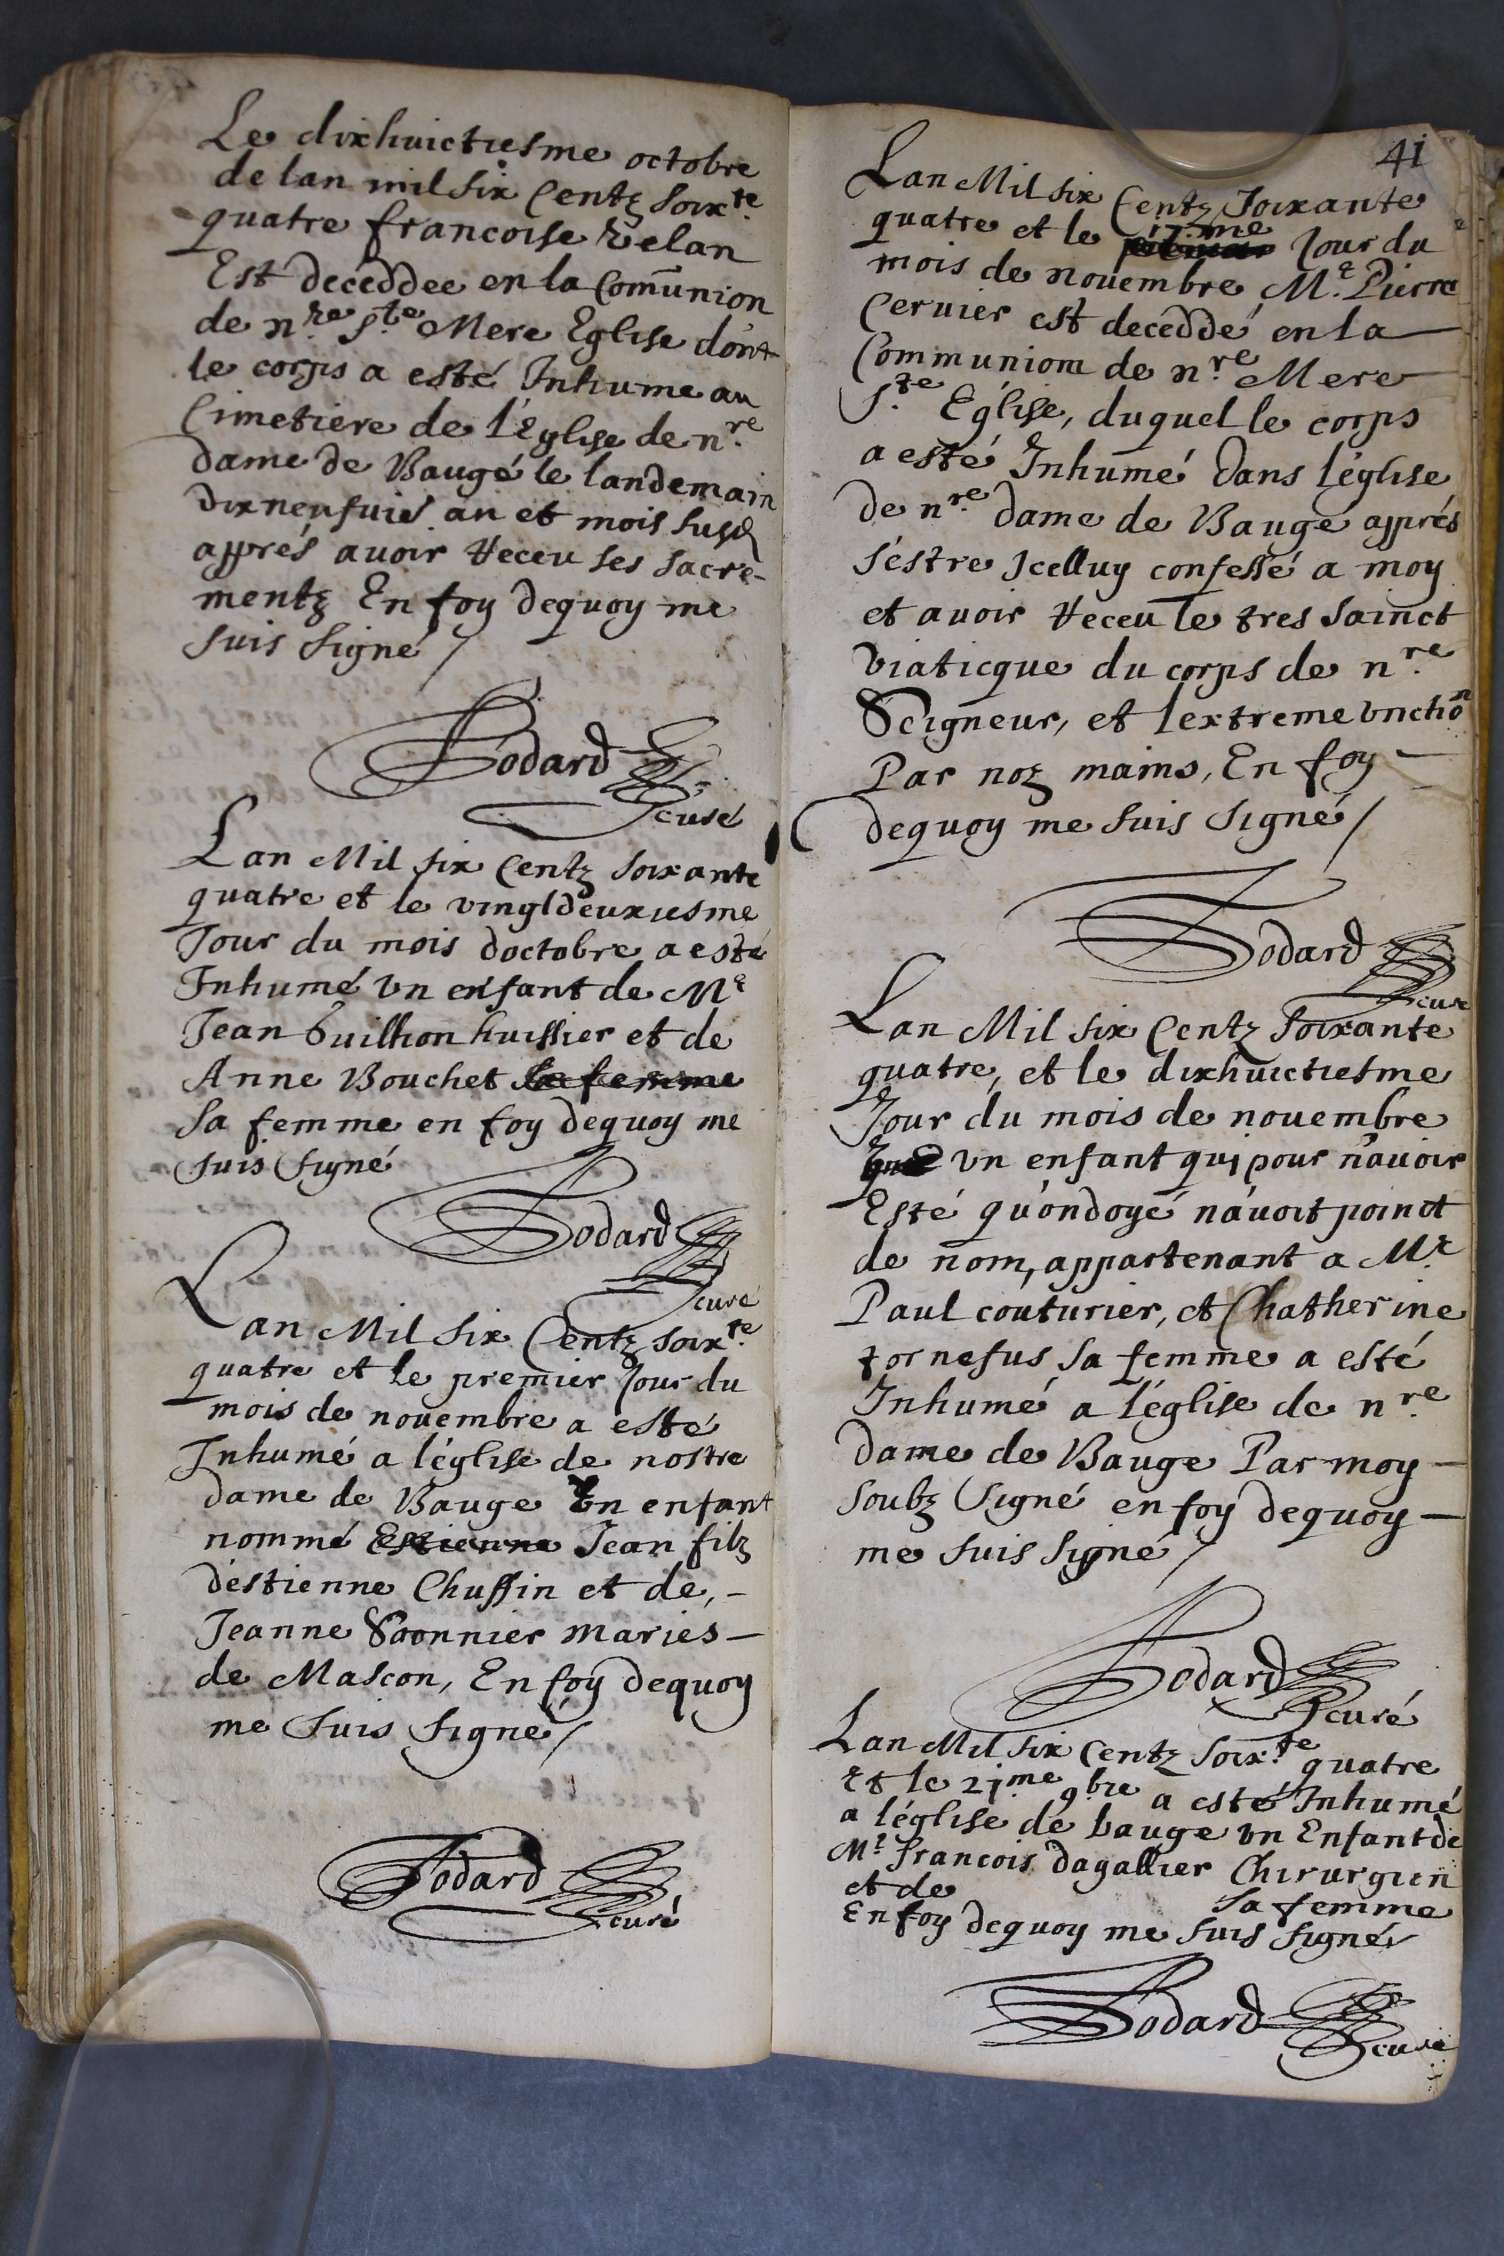 Le dixhuictiesme octobre
de lan mil six Centz soixte
quatre francoise Relan
Est deceddee en la Comunion
de nre Ste Mere Eglise dont
le corps a esté Inhume au
Cimetiere de l'Eglise de nre
dame de Baugé le landemain
dixneufuie an et mois susd
apprés auoir Receu ses sacre-
mentz En foy dequoy me
suis signé /
Bodard
curé
Lan Mil six Centz soixante
quatre et le vingtdeuxiesme
Jour du mois doctobre a esté
Inhumé vn enfant de Me
Jean Guilhon huissier et de
Anne Bouchet sa femme
sa femme en foy dequoy me
suis signé
Bodard
curé
Lan Mil six Centz soixte
quatre et le premier Jour du
mois de nouembre a esté
Inhumé a léglise de nostre
dame de Bauge Vn enfant
nommé Estienne Jean filz
déstienne Chuffin et de, -
Jeanne Saonnier maries -
de Mascon, En foy dequoy
me suis signé /
Bodard
curé
41
Lan Mil six Centz Soixante
quatre et le 17.me Jour du
mois de nouembre Me. Pierre
Ceruier est deceddé en la
Communion de nre Mere
Ste Eglise, duquel le corps
a esté Inhumé dans léglise
de nre dame de Bauge apprés
s'estre Jcelluy confessé a moy
et auoir Receu le tres sainct
viaticque du corps de nre
Seigneur, et lextreme vnction
Par noz mains, En foy
dequoy me suis signé /
Bodard
cure
Lan Mil six Centz soixante
quatre, et le dixhuictiesme
Jour du mois de nouembre
vn enfant qui pour n'auoir
Esté qu'ondoyé n'auoit poinct
de nom, appartenant a Mr
Paul couturier, et Chatherine
tornefus sa femme a esté
Inhumé a léglise de nre
dame de Bauge Par moy -
soubz signé en foy dequoy -
me suis signé /
Bodard
curé
Lan Mil six Centz soixte quatre
Et le 21me 9bre a esté Inhumé
a léglise de bauge vn Enfant de
Mr francois dagallier Chirurgien
et de sa femme
En foy dequoy me suis signé
Bodard
curé